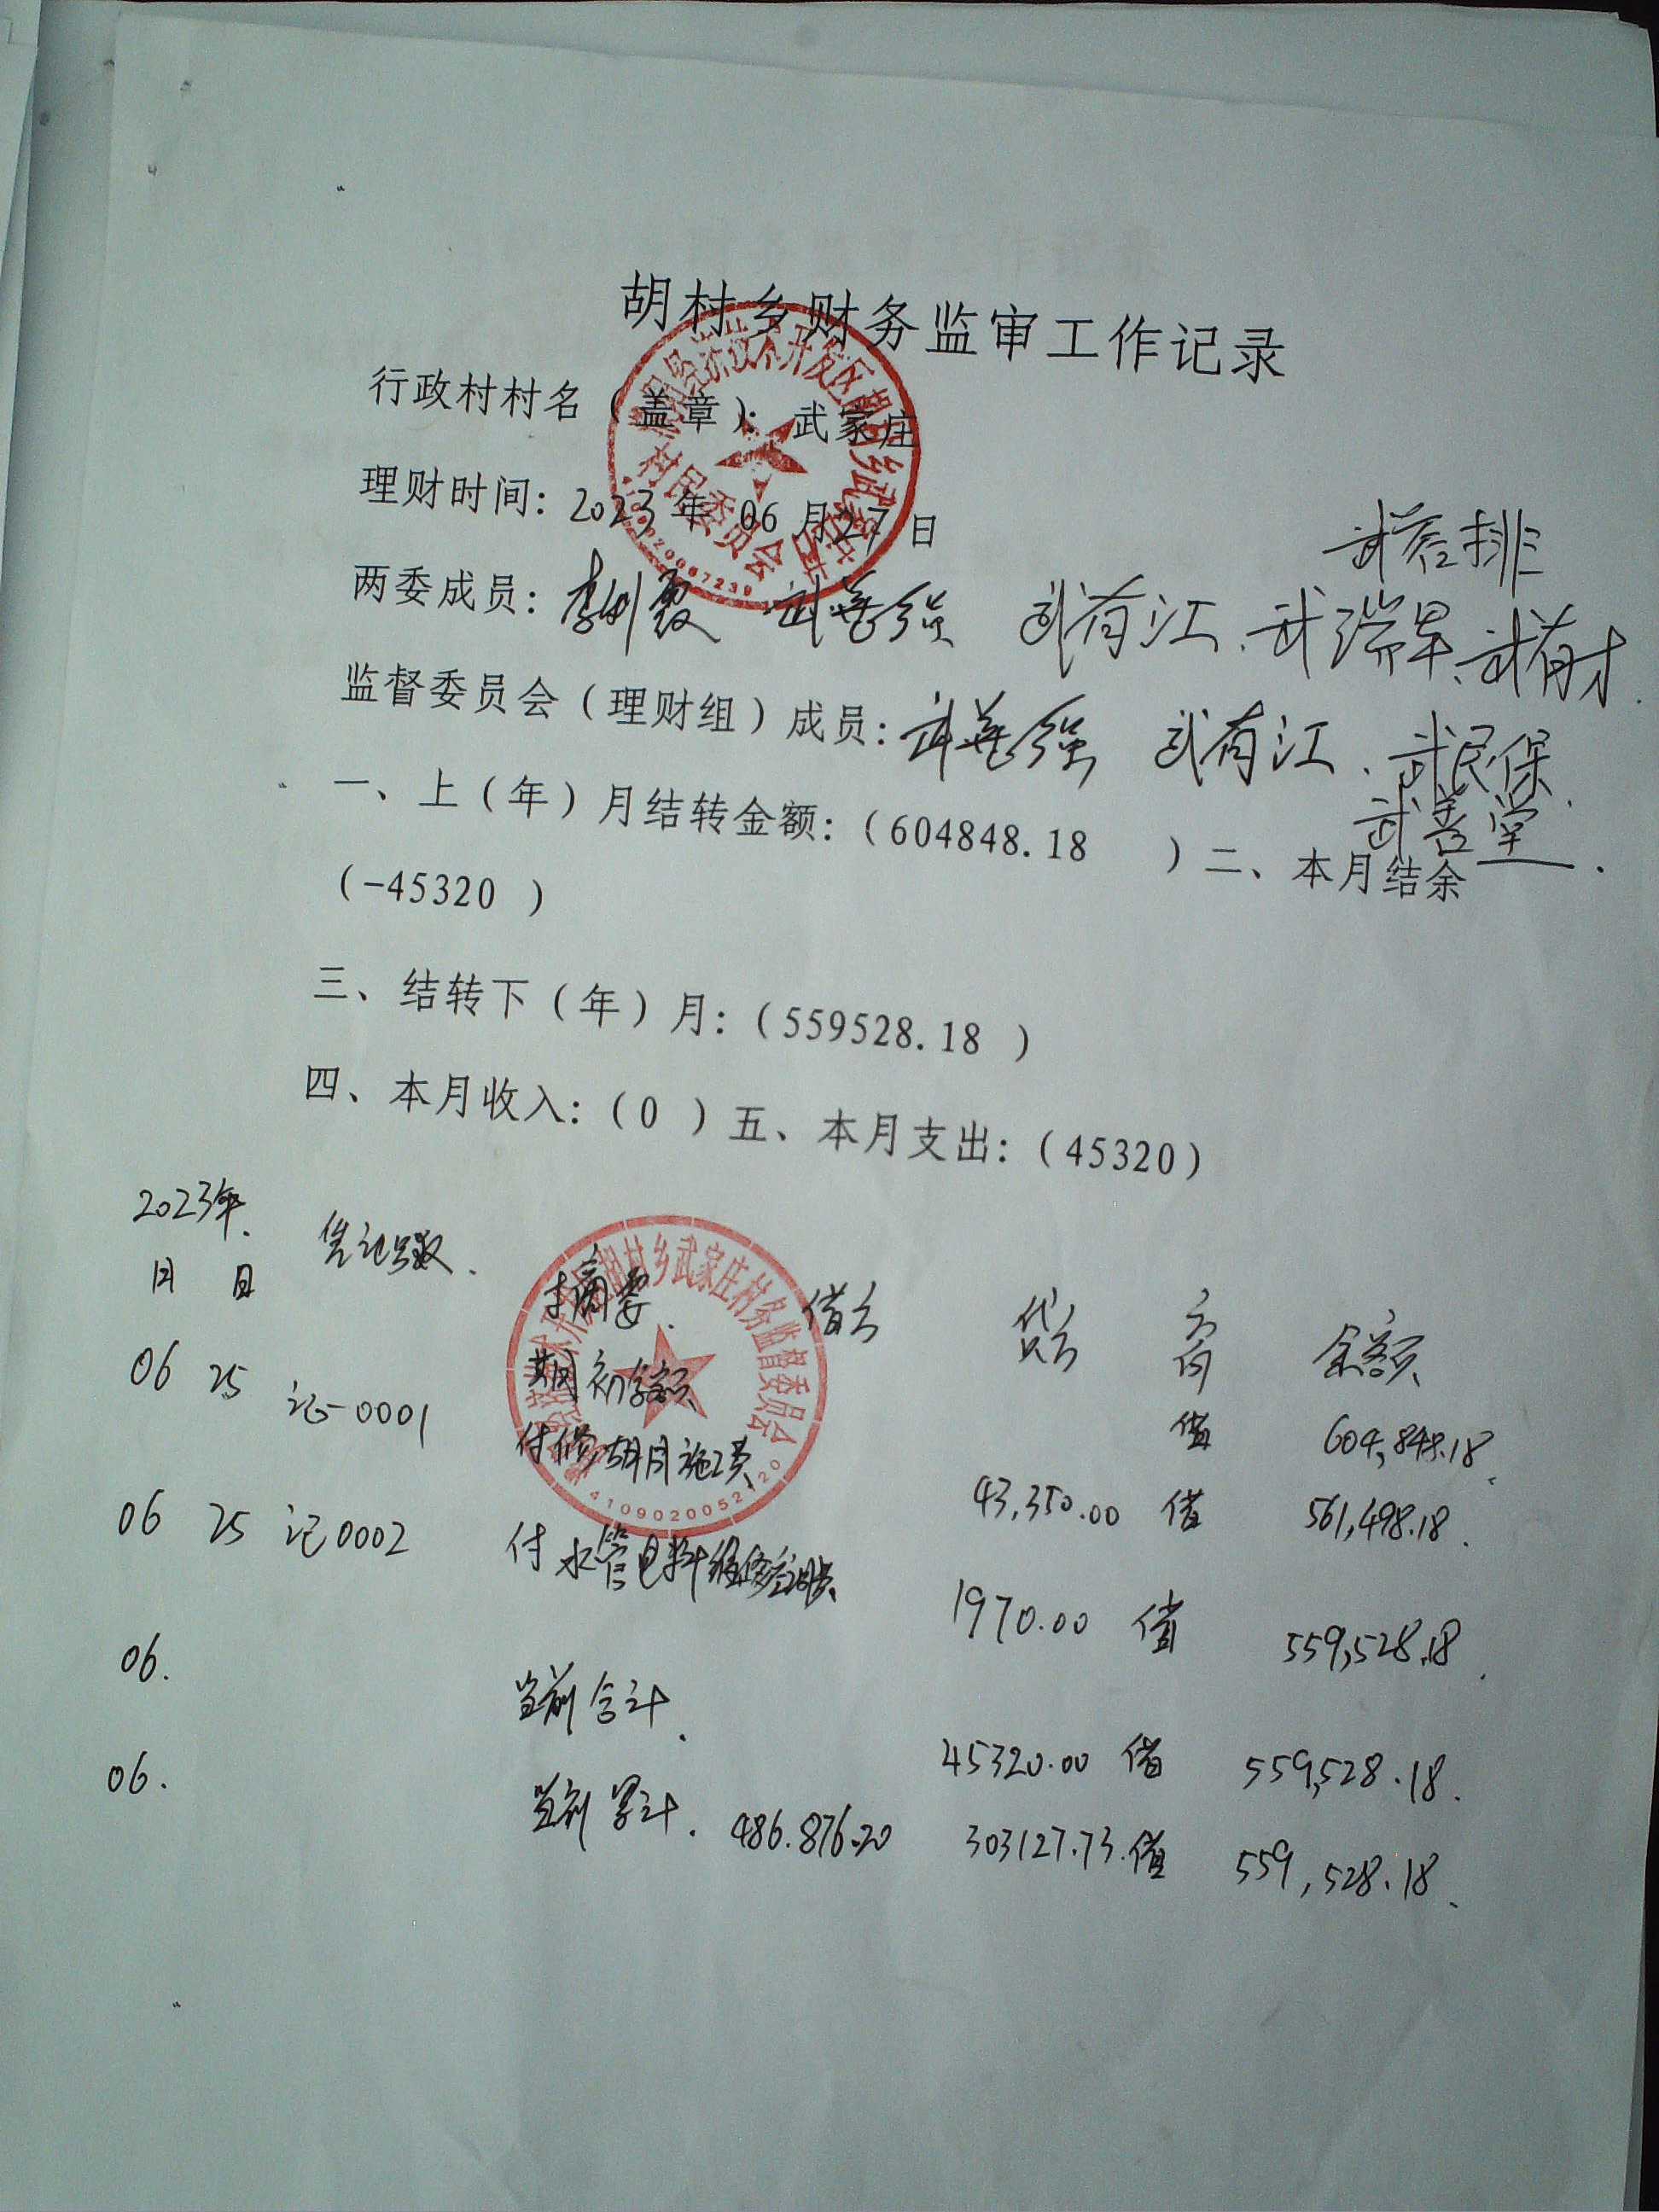 胡村乡财务监审工作记录
行政村村名（盖章）：武家庄
理财时间：2023年06月27日
武善排
两委成员：武善强 武有江、武瑞早、武有才.
监督委员会（理财组）成员：武善强 武有江、武民保、
武善堂.
一、上（年）月结转金额：（604848.18 ）二、本月结余
（-45320 ）
三、结转下（年）月：（559528.18 ）
四、本月收入：（0 ）五、本月支出：（45320）
2023年.
月 日 凭证号数. 摘要. 借方 贷方 方向 余额
期初余额 借 604,848.18.
06 25 记-0001 付修施工费 43,350.00 借 561,498.18.
06 25 记0002 付水管电料维修 1970.00 借 559,528.18.
06. 当前合计. 45320.00 借 559,528.18.
06. 当前累计. 486.876.20 303127.73. 借 559,528.18.
胡村乡武家庄村务监督委员会
村民委员会